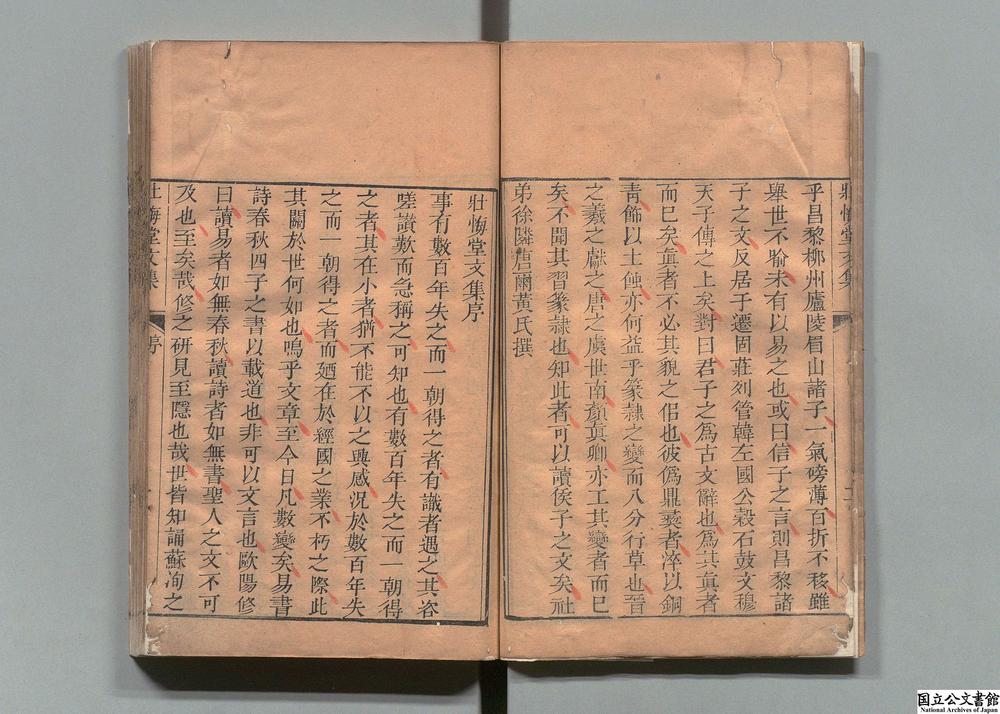 壯悔堂文集
乎昌黎柳州廬陵眉山諸子一氣磅薄百折不移雖
舉世不喻未有以易之也或曰信子之言則昌黎諸
子之文反居于遷固莊列管韓左國公穀石鼓文穆
天子傳之上矣對曰君子之爲古文辭也爲其眞者
而已矣眞者不必其貌之佀也彼僞鼎彛者淬以銅
靑飾以土蝕亦何益乎篆隷之變而八分行草也晉
之羲之獻之唐之虞世南顏眞卿亦工其變者而已
矣不聞其習篆隷也知此者可以讀侯子之文矣社
弟徐隣唐爾黃氏撰
壯悔堂文集序
事有數百年失之而一朝得之者有識者遇之其咨
嗟讚歎而急稱之可知也有數百年失之而一朝得
之者其在小者猶不能不以之興感況於數百年失
之而一朝得之者而廼在於經國之業不朽之際此
其關於世何如也嗚乎文章至今日凡數變矣易書
詩春秋四子之書以載道也非可以文言也歐陽修
曰讀易者如無春秋讀詩者如無書聖人之文不可
及也至矣哉修之研見至隱也哉世皆知誦蘇洵之
壯悔堂文集
序
一
国立公文書館
National Archives of Japan